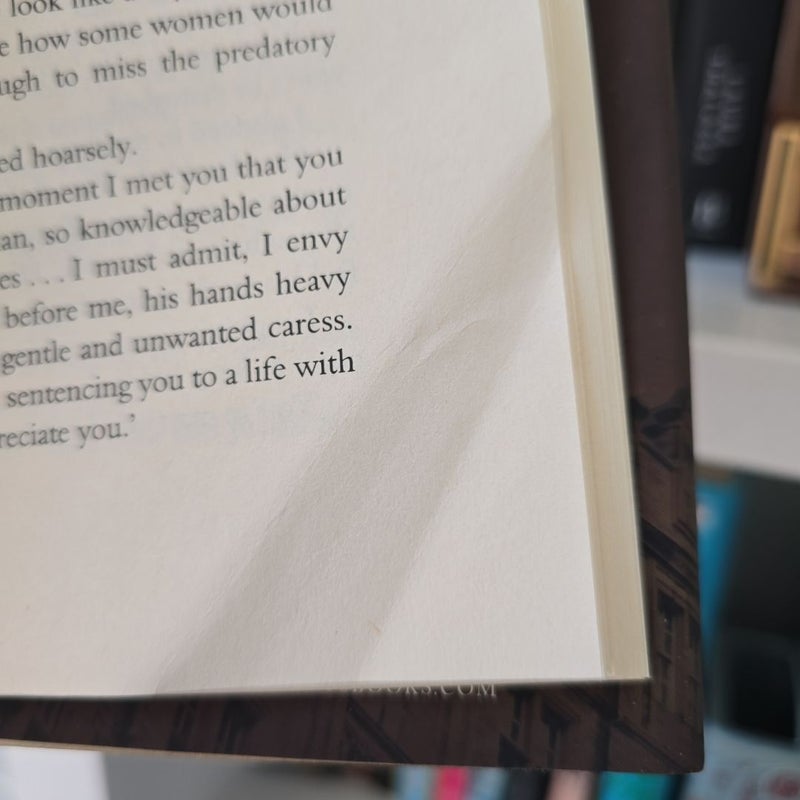 look like
e how some women would
ugh to miss the predatory
ed hoarsely.
moment I met you that you
an, so knowledgeable about
es . . . I must admit, I envy
before me, his hands heavy
gentle and unwanted caress.
sentencing you to a life with
reciate you.’
BOOKS.COM